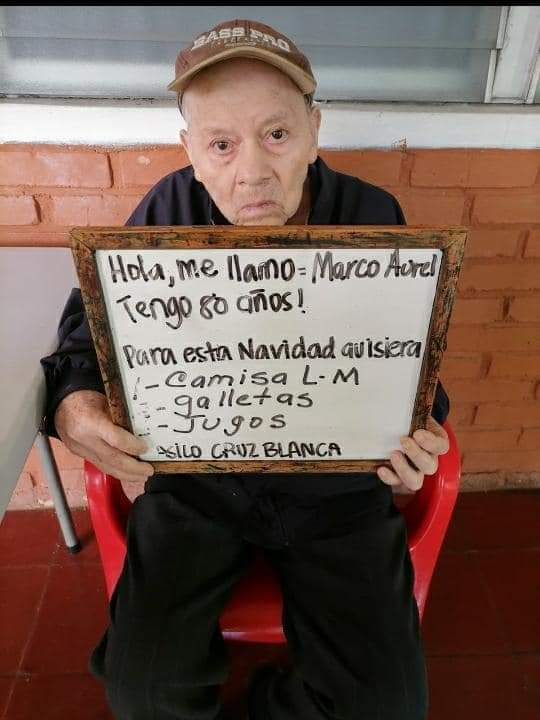 BASS PRO
Hola, me llamo = Marco Aurel
Tengo 80 años!
Para esta Navidad quisiera
- Camisa L-M
- galletas
- Jugos
ASILO CRUZ BLANCA